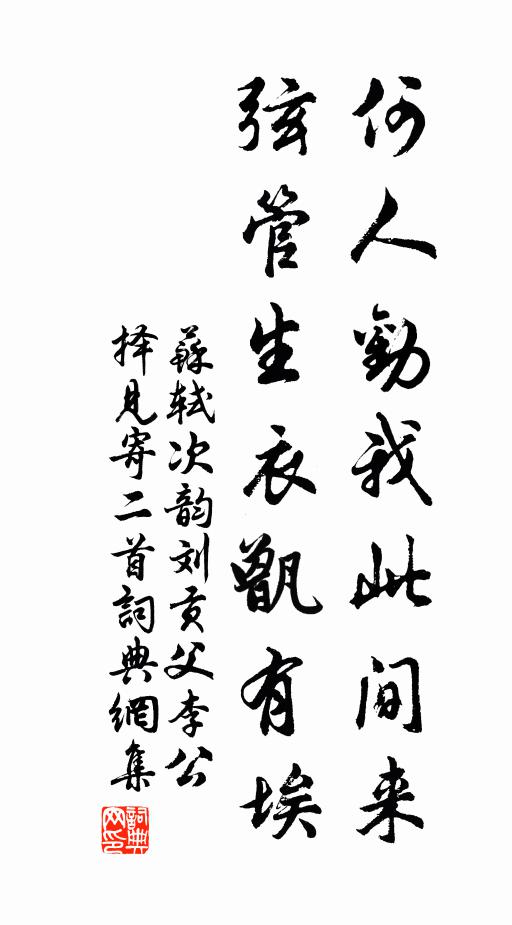 何人勸我此间来
弦管生衣甑有埃
蘇轼次韵刘贡父李公
择見寄二首詞典網集
詞典网印